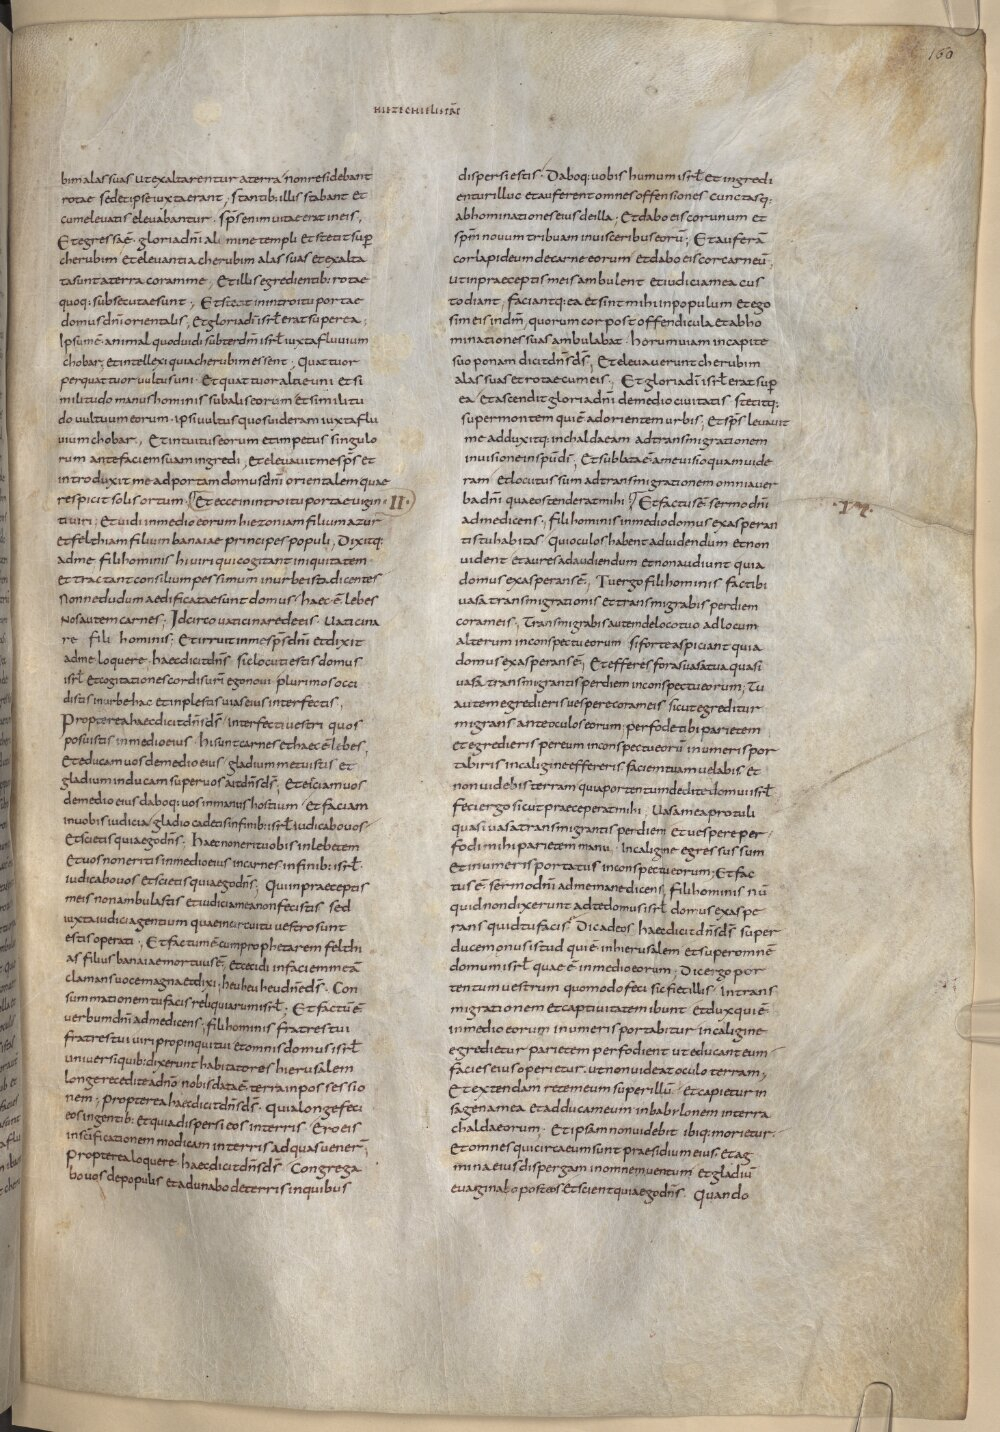 160
HIEZECHIELIS PROPHETAE
bim alas suas ut exaltarentur a terra non residebant
rotae sed et ipse iuxta erant, stantib: illis stabant et
cum elevatis elevabantur. sps enim vitae erat in eis,
Et egressa ē gloria dni a limine templi et stetit sup
cherubim et elevantia cherubim alas suas et exalta
ta sunt a terra coram me, Et illis egredientib: rotae
quoq: subsecutae sunt, Et stetit in introitu portae
domus dni orientalis, Et gloria dni isrl erat super ea,
Ipsum ē animal quod vidi subter dm isrl iuxta fluvium
chobar, et intellexi quia cherubim essent, Quattuor
per quattuor vultus uni. Et quattuor alae uni et si
militudo manus hominis sub alis eorum et similitu
do vultuum eorum. ipsi vultus quos videram iuxta flu
vium chobar, Et intuitus eorum et impetus singulo
rum ante faciem suam ingredi, Et elevavit me sps et
introduxit me ad portam domus dni orientalem quae
respicit solis ortum. Et ecce in introitu portae vigin
.II.
ti viri, Et vidi in medio eorum hiezoniam filium azur
et felthiam filium banaiae principes populi, Dixitq:
ad me fili hominis hi viri qui cogitant iniquitatem
et tractant consilium pessimum in urbe ista dicentes
Nonne dudum aedificatae sunt domus. haec ē lebes
nos autem carnes, Idcirco vaticinare de eis. vaticina
re fili hominis, Et irruit in me sps dni et dixit
ad me loquere. haec dicit dns sic locuti estis domus
isrl et cogitationes cordis urm ego novi. plurimos occi
distis in urbe hac et inplestis vias eius interfectis,
Propterea haec dicit dns ds. interfecti vestri quos
posuistis in medio eius. hi sunt carnes et haec ē lebes,
Et educam vos de medio eius gladium metuistis et
gladium inducam super vos ait dns ds, Et eiciam vos
de medio eius daboq: vos in manus hostium et faciam
in vobis iudicia, gladio cadetis in finib: isrl iudicabo vos
Et scietis quia ego dns, Haec non erit vobis in lebetem
et vos non eritis in medio eius in carnes in finib: isrl.
iudicabo vos et scietis quia ego dns, Qui in praeceptis
meis non ambulastis et iudicia mea non fecistis sed
iuxta iudicia gentium quae in circuitu vestro sunt
estis operati, Et factum ē cum prophetarem felthi
as filius banaiae mortuus ē, et cecidi in faciem meā
clamans voce magna et dixi, heu heu heu dne ds, Con
summationem tu facis reliquiarum isrl, Et factū ē
verbum dni ad me dicens, fili hominis fratres tui
fratres tui viri propinqui tui et omnis domus isrl
universi quib: dixerunt habitatores hierusalem
longe recedite a dno nobis data ē terra in possessio
nem, propterea haec dicit dns ds. Quia longe feci
eos in gentib: et quia dispersi eos in terris Ero eis
in scificationem modicam in terris ad quas vener,
Propterea loquere haec dicit dns ds. Congrega
bo vos de populis et adunabo de terris in quibus
dispersi estis. Daboq: vobis humum isrl et ingredi
entur illuc et auferent omnes offensiones cunctasq:
abhominationes eius de illa, Et dabo eis cor unum et
spm novum tribuam in visceribus eorū, Et auferā
cor lapideum de carne eorum et dabo eis cor carneū,
ut in praeceptis meis ambulent et iudicia mea cus
todiant, faciantq: ea et sint mihi in populum et ego
sim eis in dm, quorum cor post offendicula et abho
minationes suas ambulabat. horum viam in capite
suo ponam dicit dns ds, Et elevaverunt cherubim
alas suas et rotae cum eis, Et gloria di isrl erat sup
ea. Et ascendit gloria dni de medio civitatis stetitq:
super montem qui ē ad orientem urbis, Et sps levavit
me adduxitq: in chaldaeam ad transmigrationem
in visione in spu di, Et sublata ē a me visio quam vide
ram Et locutus sum ad transmigrationem omnia ver
ba dni quae ostenderat mihi, Et factus ē sermo dni
ad me dicens, fili hominis in medio domus exasperan
tis tu habitas Qui oculos habent ad videndum et non
vident et aures ad audiendum et non audiunt quia
domus exasperans ē, Tu ergo fili hominis fac tibi
vasa transmigrationis et transmigrabis per diem
coram eis, Transmigrabis autem de loco tuo ad locum
alterum in conspectu eorum si forte aspiciant quia
domus exasperans ē, Et efferes foras vasa tua quasi
vasa transmigrantis per diem in conspectu eorum, Tu
autem egredieris vespere coram eis sicut egreditur
migrans ante oculos eorum, perfode tibi parietem
et egredieris per eum in conspectu eorū in umeris por
taberis in caligine effereris faciem tuam velabis et
non videbis terram quia portentum dedi te domui isrl
feci ergo sicut praeceperat mihi, Vasa mea protuli
quasi vasa transmigrantis per diem et vespere per
fodi mihi parietem manu, In caligine egressus sum
et in umeris portatus in conspectu eorum, Et fac
tus ē sermo dni ad me mane dicens, fili hominis nū
quid non dixerunt ad te domus isrl domus exaspe
rans quid tu facis, Dic ad eos haec dicit dns ds super
ducem onus istud qui ē in hierusalem et super omnē
domum isrl quae ē in medio eorum, Dic ergo por
tentum vestrum quomodo feci sic fiet illis. In trans
migrationem et captivitatem ibunt et dux qui ē
in medio eorum in umeris portabitur in caligine
egredietur parietem perfodient ut educant eum
facies eius operietur, ut non videat oculo terram,
Et extendam rete meum super illū et capietur in
sagena mea et adducam eum in babylonem in terra
chaldaeorum, Et ipsam non videbit ibiq: morietur.
Et omnes qui circa eum sunt praesidium eius et ag
mina eius dispergam in omnem ventum et gladiū
evaginabo post eos Et scient quia ego dns. Quando